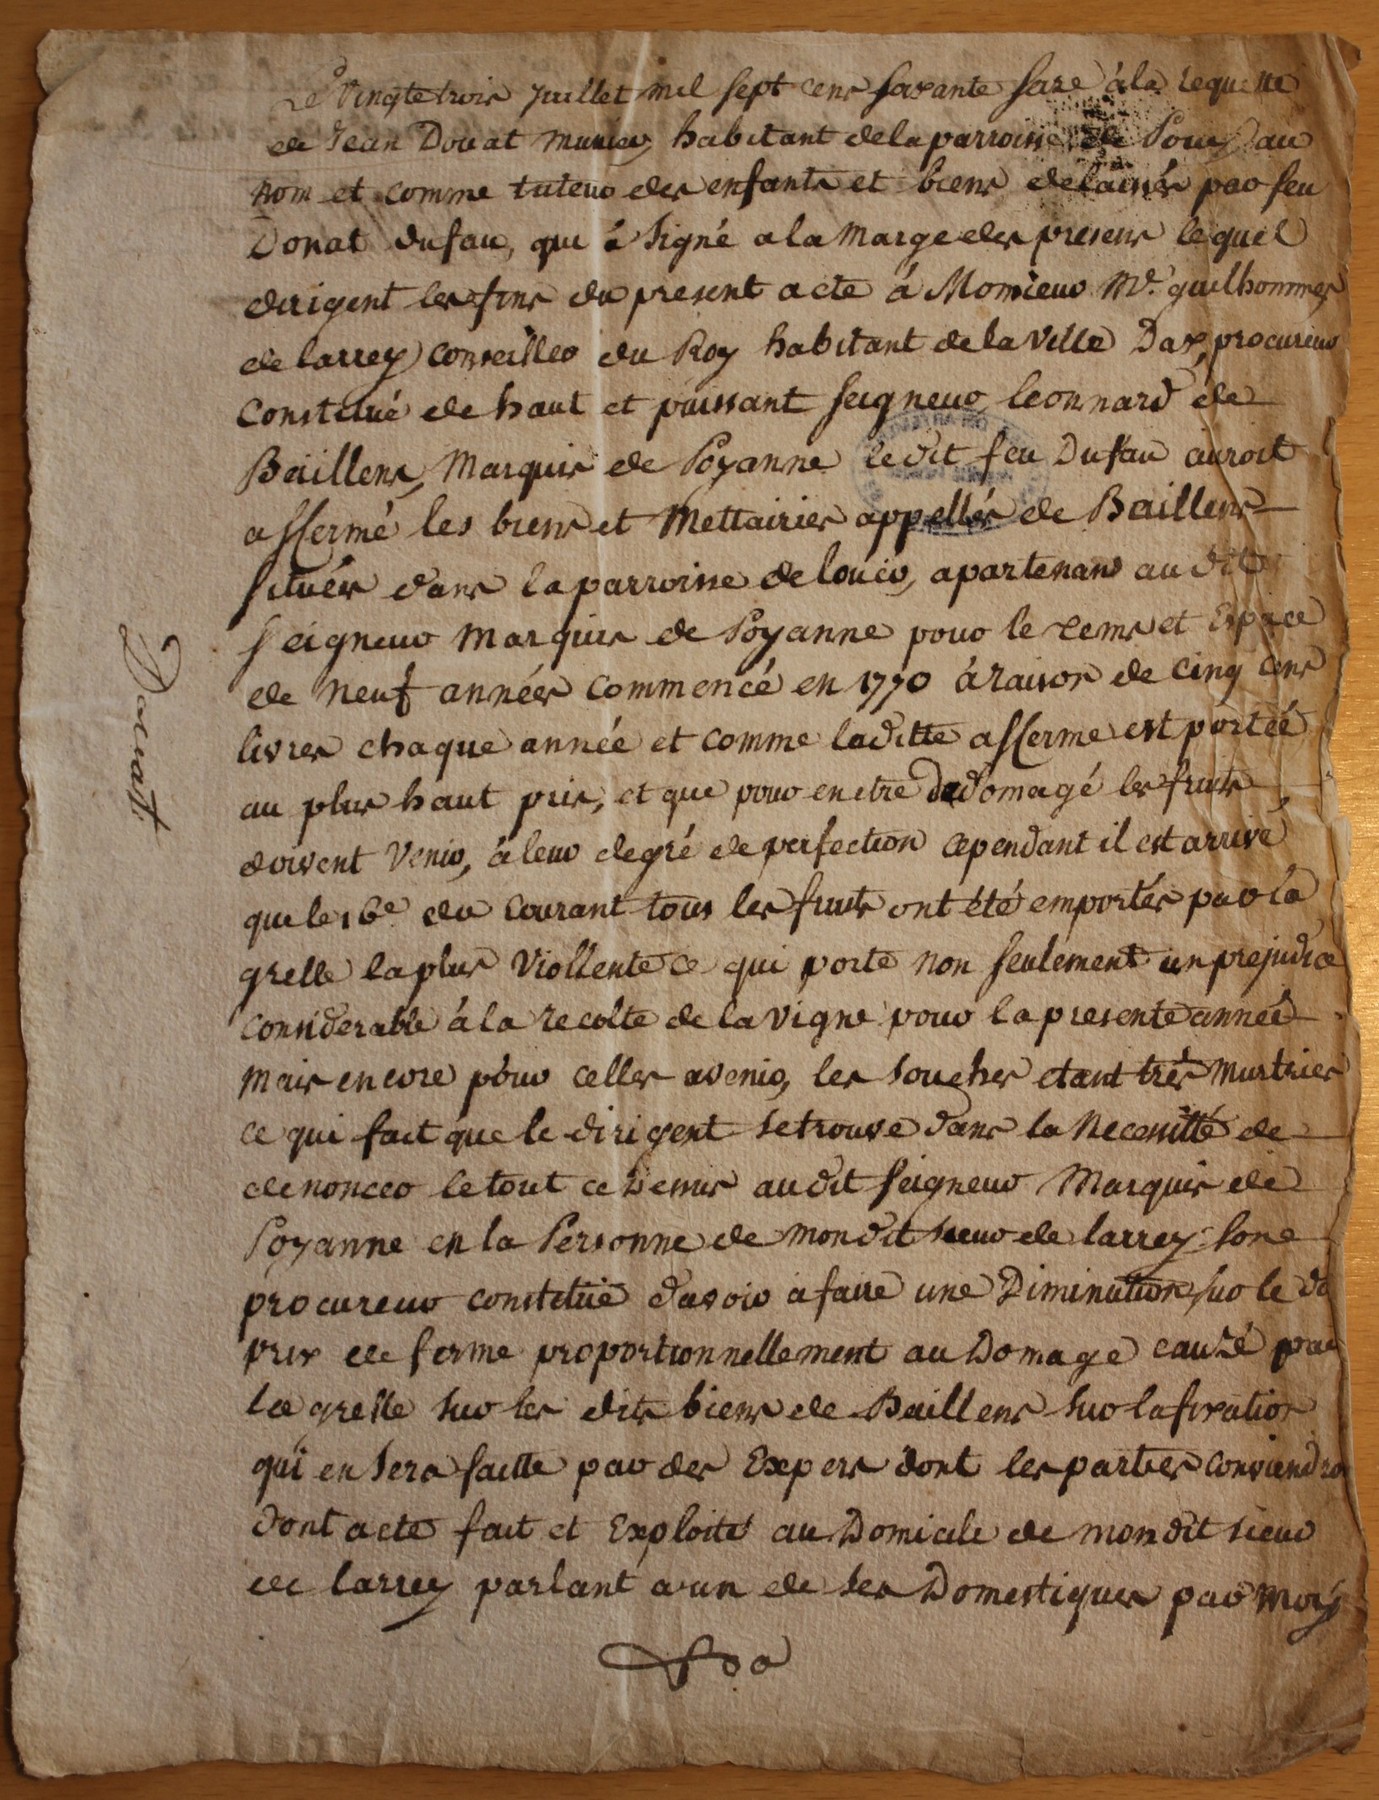 Le Vingte trois Juillet mil sept cens soxante saze à la requette
de Jean Douat habitant de la parroisse de Pouy au
nom et comme tuteur des enfants et biens delaissés par feu
Donat dufau, qui à signé a la marge des presens lequel
dirigent les fins du present acte á Monsieur Mr. guilhommes
de larrey conseiller du Roy habitant de la Ville Dax, procureur
Constitué de haut et puissant seigneur leonnard de
Baillens, Marquis de Poyanne ledit feu Dufau auroit
affermé les biens et Mettairies appellés de Baillens
situés dans la parroisse de louer, apartenans au dit
seigneur Marquis de Poyanne pour le tems et Espace
de neuf années commencé en 1770 à raison de cinq cens
livres chaque année et comme laditte afferme est portée
au plus haut prix, et que pour en etre Dedomagé les fruits
doivent Venir, à leur degré de perfection cependant il est arrivé
que le 16e du Courant tous les fruits ont été emportés par la
grelle la plus Viollente ce qui porte non seulement un prejudice
considerable à la recolte de la vigne pour la presente année
Mais encore pour celles avenir, les souches etant trés murtries
ce qui fait que le dirigent se trouve dans la Necessitté de
denoncer le tout ce Dessus audit seigneur Marquis de
Poyanne en la Personne de mondit sieur de larrey son
procureur constitué davoir a faire une Diminution sur le d
prix de ferme proportionnellement au Domage cauzé par
la grelle sur les dits biens de Baillens sur la fixation
qui en sera faitte par des Expers dont les parties conviendro
Dont acte fait et Exploité au Domicile de mondit sieur
de larrey parlant a un de ses Domestiques par Moy
Douat